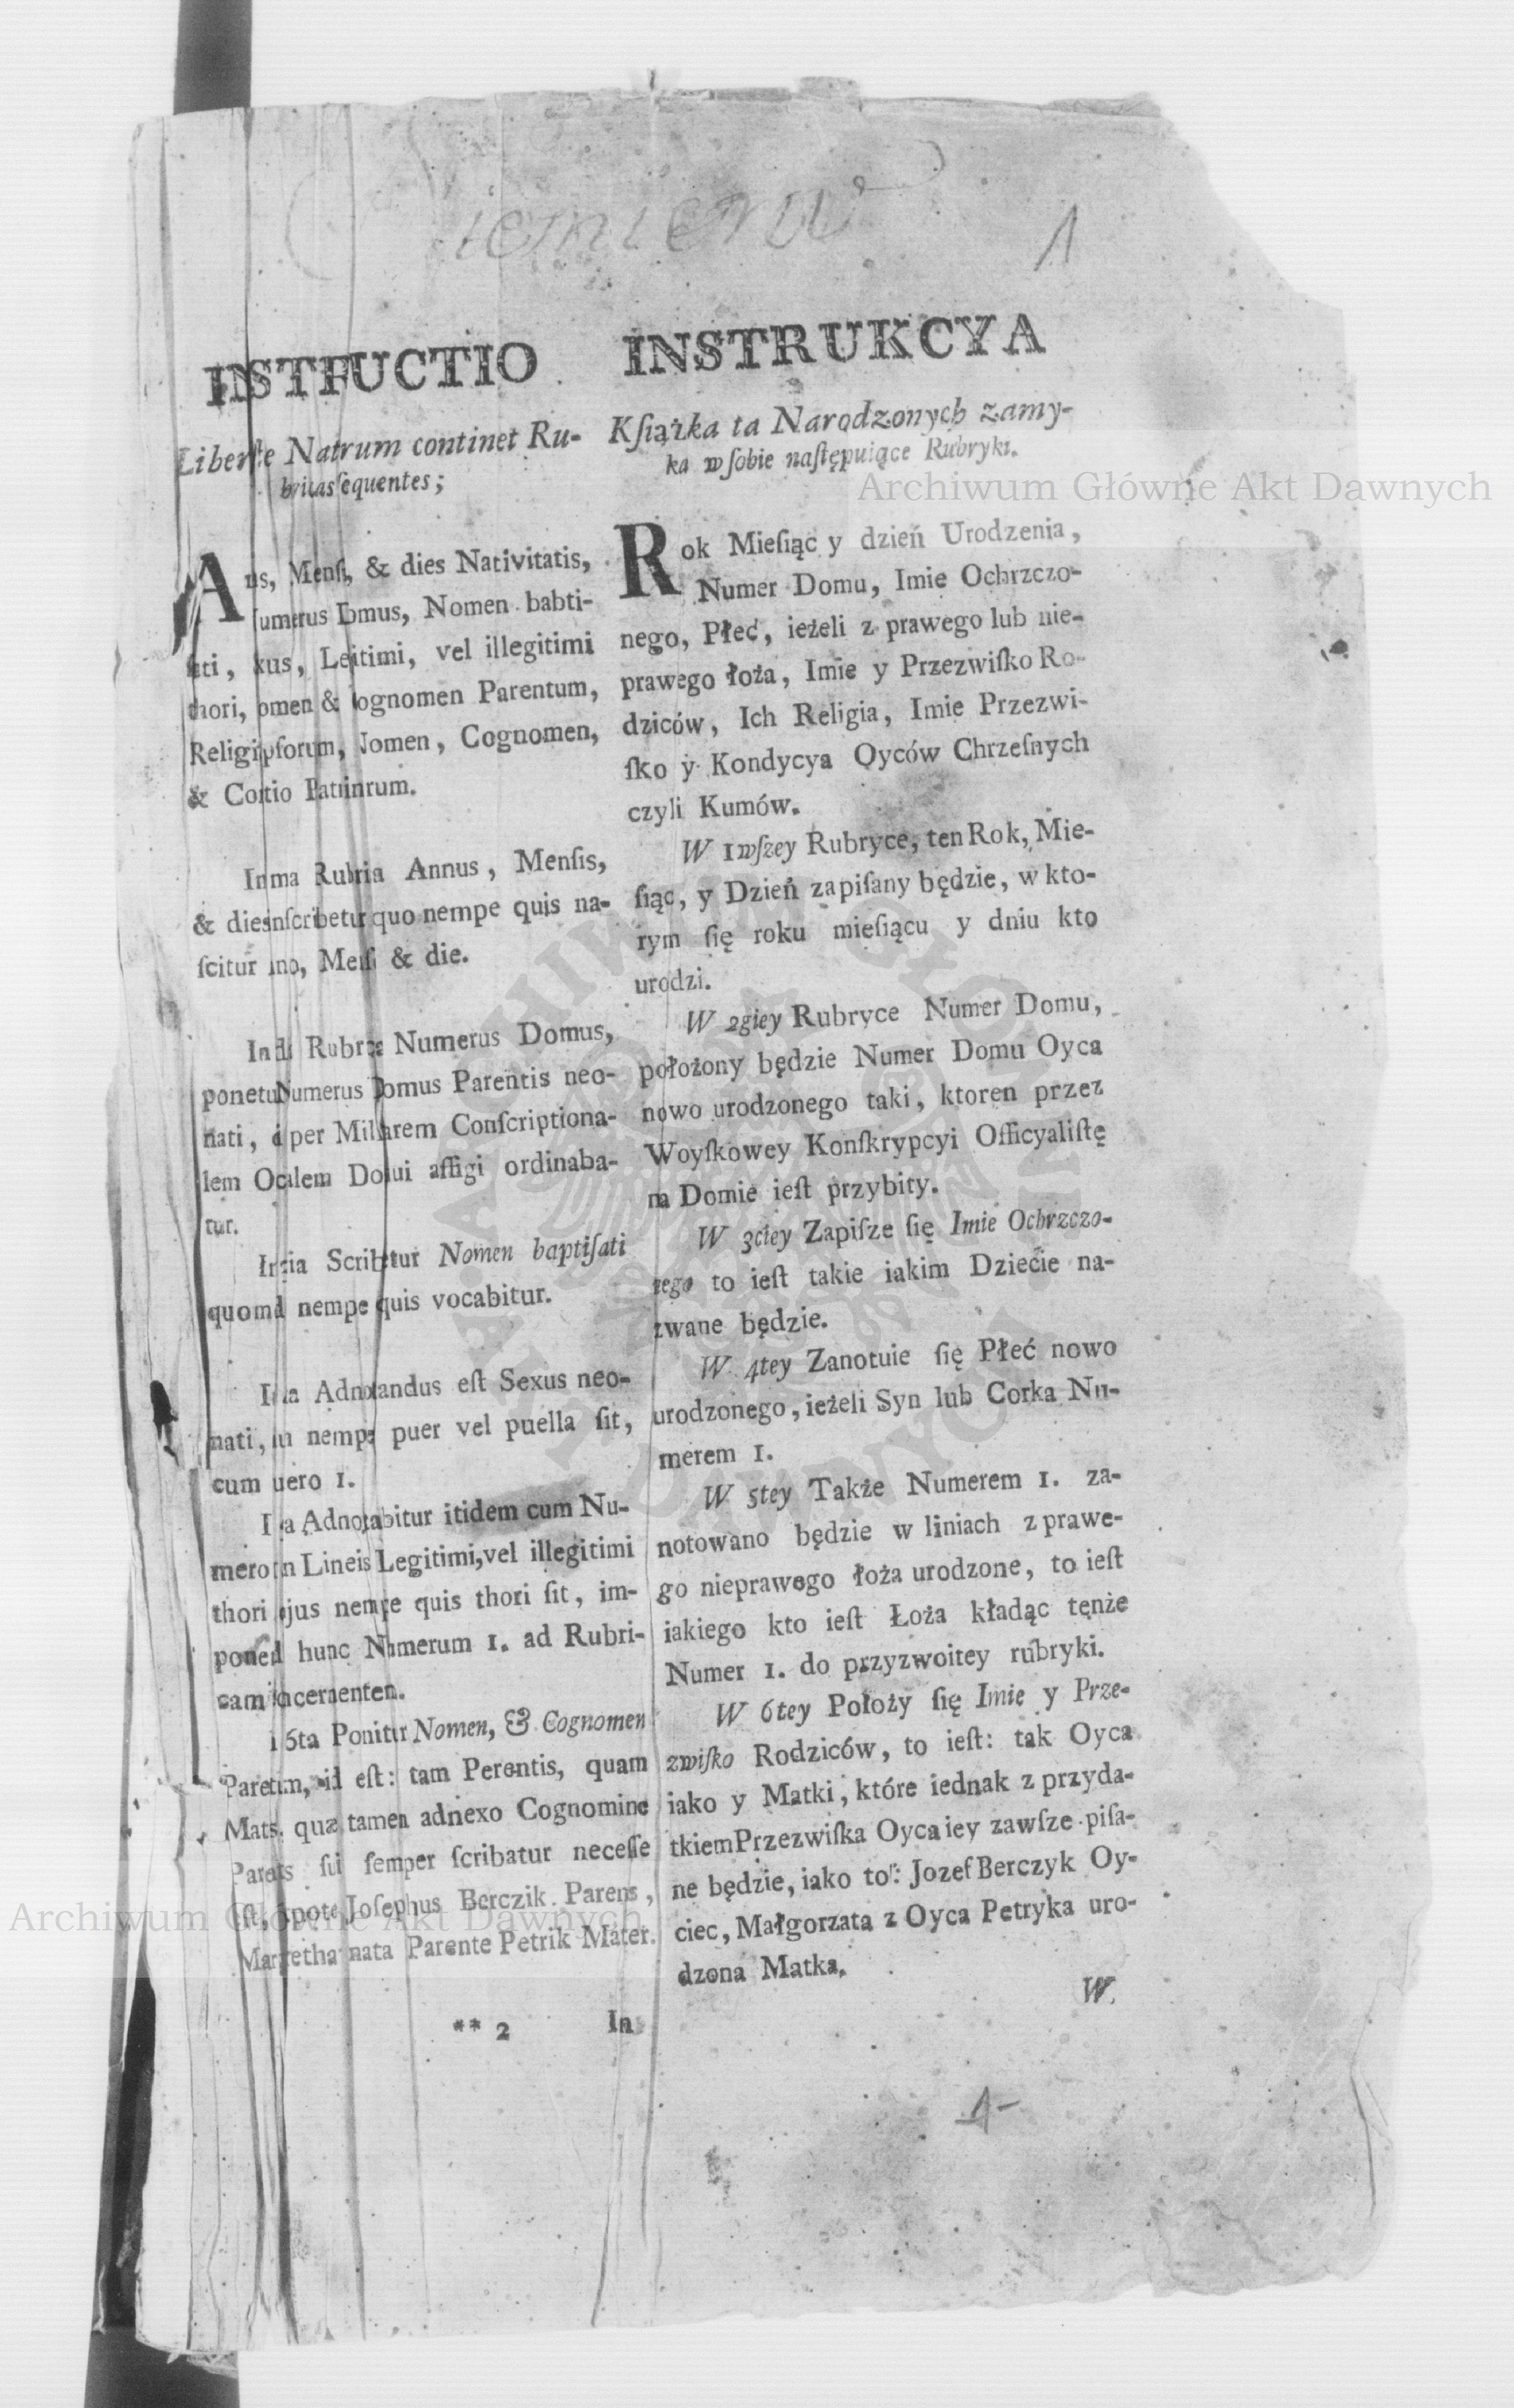 1
INSTRUCTIO
Natrum continet Ru-
sequentes;
& dies Nativitatis,
Nomen babti-
vel illegitimi
Parentum,
Nomen, Cognomen,
&
Annus, Menſis,
& quo nempe quis na-
ſcitur & die.
Numerus Domus,
Numerus Domus Parentis neo-
nati, per Conſcriptiona-
lem affigi ordinaba-
tur.
Nomen baptiſati
nempe quis vocabitur.
Adnotandus eſt Sexus neo-
nati, puer vel puella ſit,
cum 1.
Adnotabitur itidem cum Nu-
mero Lineis Legitimi, vel illegitimi
thori nempe quis thori ſit, im-
hunc Numerum 1. ad Rubri-
cam
6ta Ponitur Nomen, & Cognomen
id eſt: tam Perentis, quam
quæ tamen adnexo Cognomine
ſui ſemper ſcribatur neceſſe
Joſephus Berczik Parens,
nata Parente Petrik Mater.
** 2 In
INSTRUKCYA
Kſiążka ta Narodzonych zamy-
ka w ſobie naſtępuiące Rubryki.
Rok Mieſiąc y dzień Urodzenia,
Numer Domu, Imie Ochrzczo-
nego, Płeć, ieżeli z prawego lub nie-
prawego łoża, Imie y Przezwiſko Ro-
dziców, Ich Religia, Imie Przezwi-
ſko y Kondycya Oyców Chrzeſnych
czyli Kumów.
W 1wſzey Rubryce, ten Rok, Mie-
ſiąc, y Dzień zapiſany będzie, w kto-
rym ſię roku mieſiącu y dniu kto
urodzi.
W 2giey Rubryce Numer Domu,
położony będzie Numer Domu Oyca
nowo urodzonego taki, ktoren przez
Woyſkowey Konſkrypcyi Officyaliſtę
na Domie ieſt przybity.
W 3ciey Zapiſze ſię Imie Ochrzczo-
nego to ieſt takie iakim Dziecie na-
zwane będzie.
W 4tey Zanotuie ſię Płeć nowo
urodzonego, ieżeli Syn lub Corka Nu-
merem 1.
W 5tey Także Numerem 1. za-
notowano będzie w liniach z prawe-
go nieprawego łoża urodzone, to ieſt
iakiego kto ieſt Łoża kładąc tęnże
Numer 1. do przyzwoitey rubryki.
W 6tey Położy ſię Imie y Prze-
zwiſko Rodziców, to ieſt: tak Oyca
iako y Matki, które iednak z przyda-
tkiem Przezwiſka Oyca iey zawſze piſa-
ne będzie, iako to: Jozef Berczyk Oy-
ciec, Małgorzata z Oyca Petryka uro-
dzona Matka.
W.
1
Archiwum Główne Akt Dawnych
Archiwum Główne Akt Dawnych